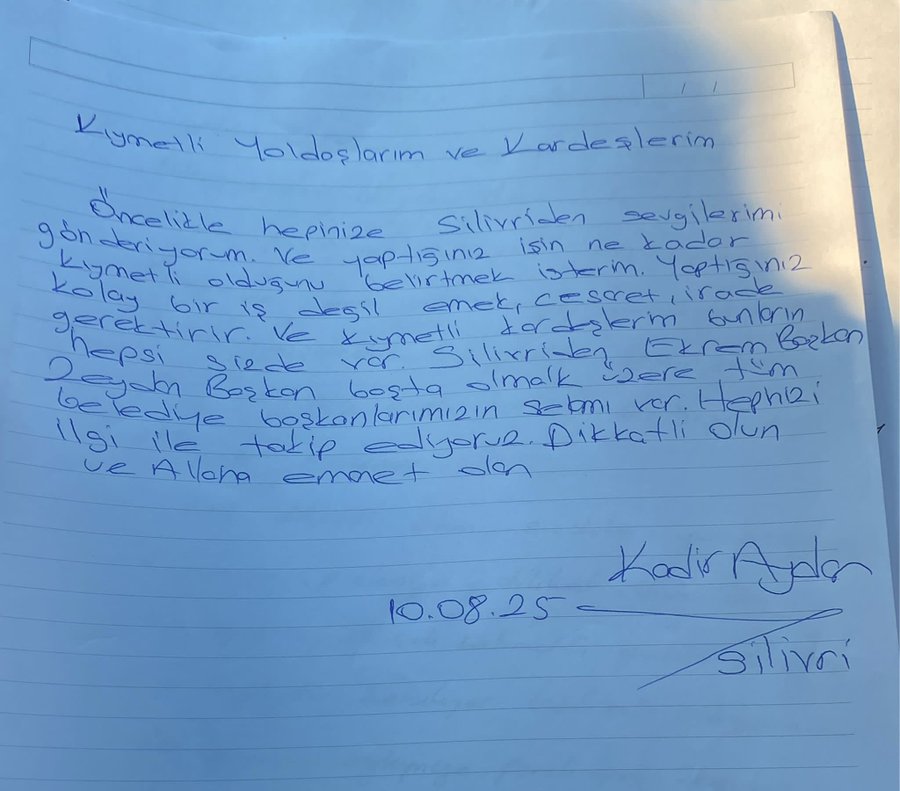 Kıymetli Yoldaşlarım ve Kardeşlerim
Öncelikle hepinize Silivriden sevgilerimi
gönderiyorum. Ve yaptığınız işin ne kadar
kıymetli olduğunu belirtmek isterim. Yaptığınız
kolay bir iş değil emek, cesaret, irade
gerektirir. Ve kıymetli kardeşlerim bunların
hepsi sizde var. Silivriden Ekrem Başkan
Zeydan Başkan başta olmak üzere tüm
belediye başkanlarımızın selamı var. Hepinizi
ilgi ile takip ediyoruz. Dikkatli olun
ve Allaha emanet olun
Kadir Aydar
10.08.25
Silivri